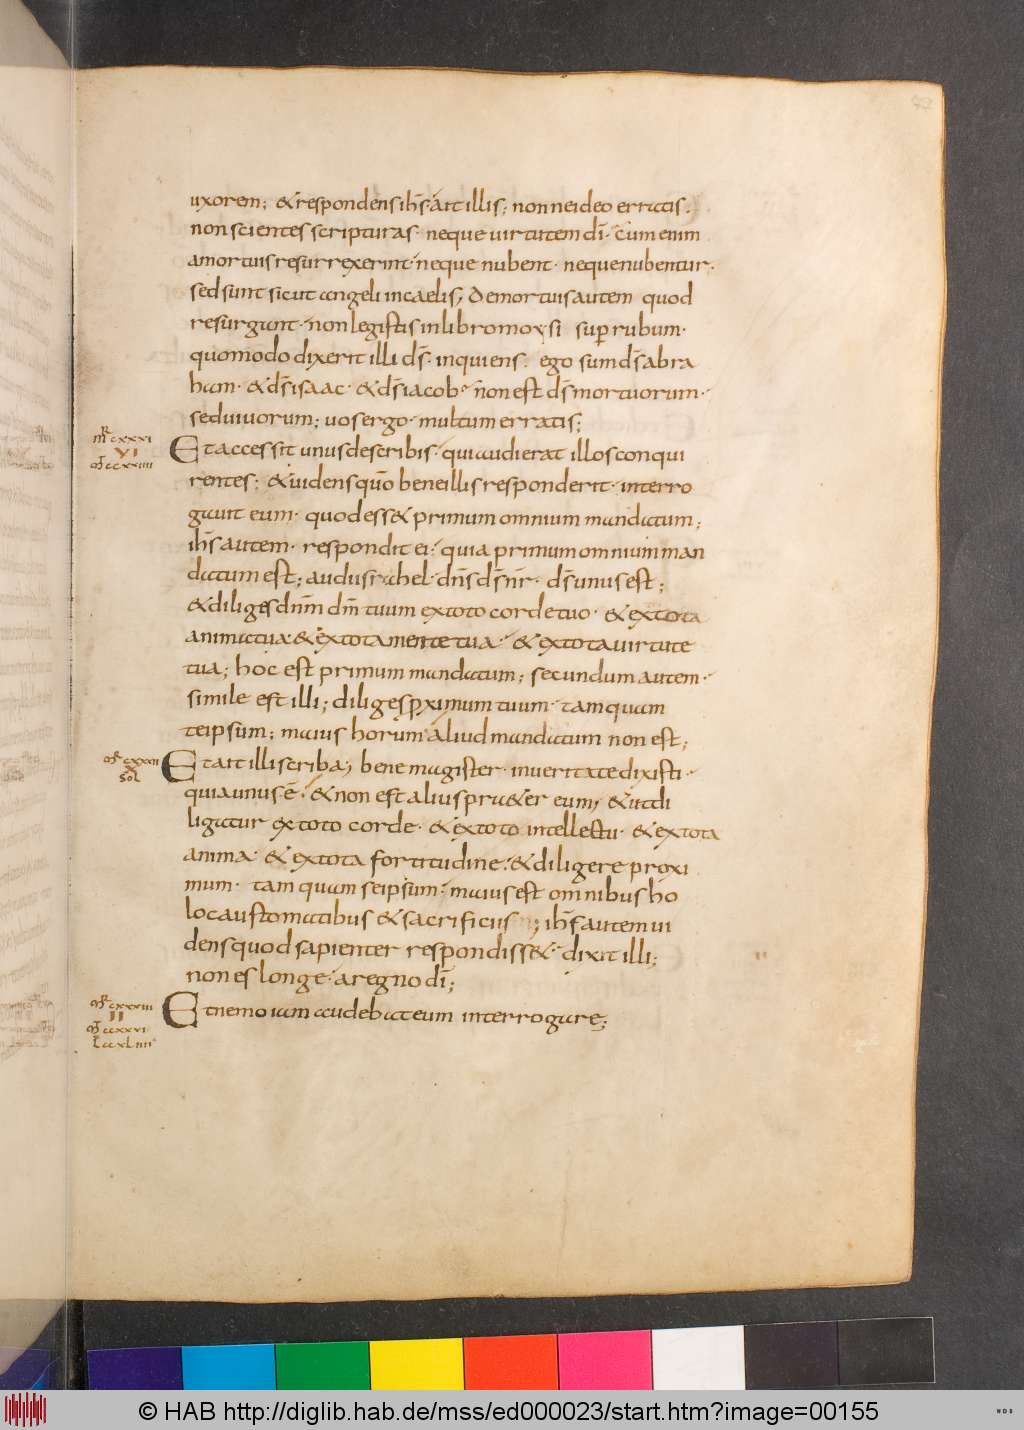 72
uxorem; & respondens ih̅s ait illis; non ne ideo erratis.
non scientes scripturas· neque uirtutem dī· cum enim
a mortuis resurrexerint· neque nubent· neque nubentur·
sed sunt sicut angeli in caelis; De mortuis autem quod
resurgunt· non legistis in libro moysi sup̱ rubum·
quomodo dixerit illi d̅s· inquiens· ego sum d̅s abra
ham· & d̅s isaac· & d̅s iacob· non est d̅s mortuorum·
sed uiuorum; uos ergo· multum erratis;
mR cxxxi
VI
mT ccxxiiii
Et accessit unus de scribis· qui audierat illos conqui
rentes; & uidens quō bene illis responderit· interro
gauit eum· quod ess& primum omnium mandatum;
ih̅s autem· respondit ei· quia primum omnium man
datum est; audi israhel· dn̅s d̅s nr̅· d̅s unus est;
& diliges dn̅m dm̅ tuum ex toto corde tuo· & ex tota
anima tua· & ex tota mente tua· & ex tota uirtute
tua; hoc est primum mandatum; secundum autem·
simile est illi; diliges p̱ximum tuum· tamquam
teipsum; maius horum aliud mandatum non est;
mR cxxxii
X
Sol
Et ait illi scriba; bene magister· in ueritate dixisti·
quia unus ē· & non est alius pr&er eum; & ut di
ligatur ex toto corde· & ex toto intellectu· & ex tota
anima· & ex tota fortitudine· & diligere proxi
mum· tam quam seipsum· maius est omnibus ho
locaustomatibus & sacrificiis; ih̅s autem ui
dens quod sapienter respondiss&· dixit illi;
non es longe· a regno dī;
mR cxxxiii
II
mT ccxxvi
L ccxLiiii
Et nemo iam audebat eum interrogare;
© HAB http://diglib.hab.de/mss/ed000023/start.htm?image=00155
WDB